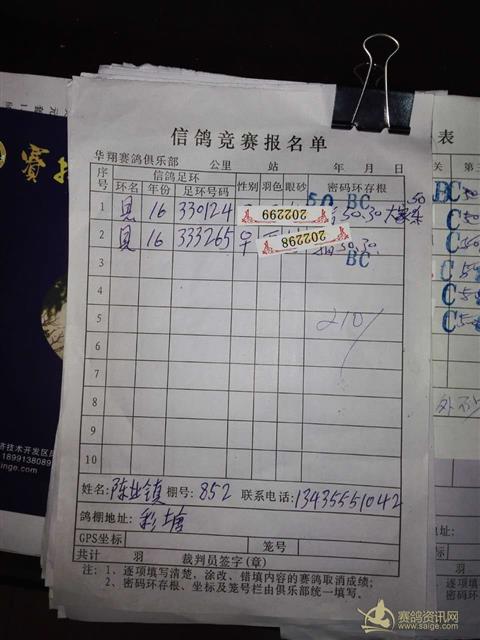 信鸽竞赛报名单
华翔赛鸽俱乐部 公里 站 年 月 日
序号 信鸽足环 性别 羽色 眼砂 密码环存根
环名 年份 足环号码
50 BC 50
1 见 16 330124 202299 50.30
2 见 16 333265 早 202298 50.30
3 BC
4
5 210/
6
7
8
9
10
姓名: 陈 镇 棚号: 852 联系电话: 13435551042
鸽棚地址: 彩塘
GPS坐标 笼号
共计 羽 裁判员签字(章)
注: 1、逐项填写清楚,涂改、错填内容的赛鸽取消成绩;
2、密码环存根、坐标及笼号栏由俱乐部统一填写。
表
关 第三
BC 50
C 50
C 50
C 50
C 50
济技术开发区
1899138089
inge.com
赛鸽资讯网
www.saige.com